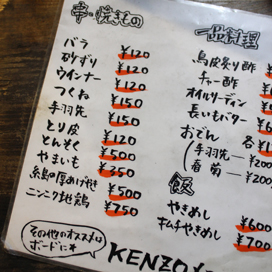 串・焼きもの
バラ ¥120
砂ずり ¥120
ウインナー ¥120
つくね ¥150
手羽先 ¥150
とり皮 ¥120
とんそく ¥500
やまいも ¥250
糸島厚あげ焼き ¥500
ニンニク地鶏 ¥750
その他のオススメは
ボードに
KENZO
一品料理
鳥皮炙り酢
チャー酢
オイルサーディン
長いもバター
おでん 各¥1
手羽先 ¥200
春菊 ¥200
飯
やきめし ¥600
キムチやきめし ¥700